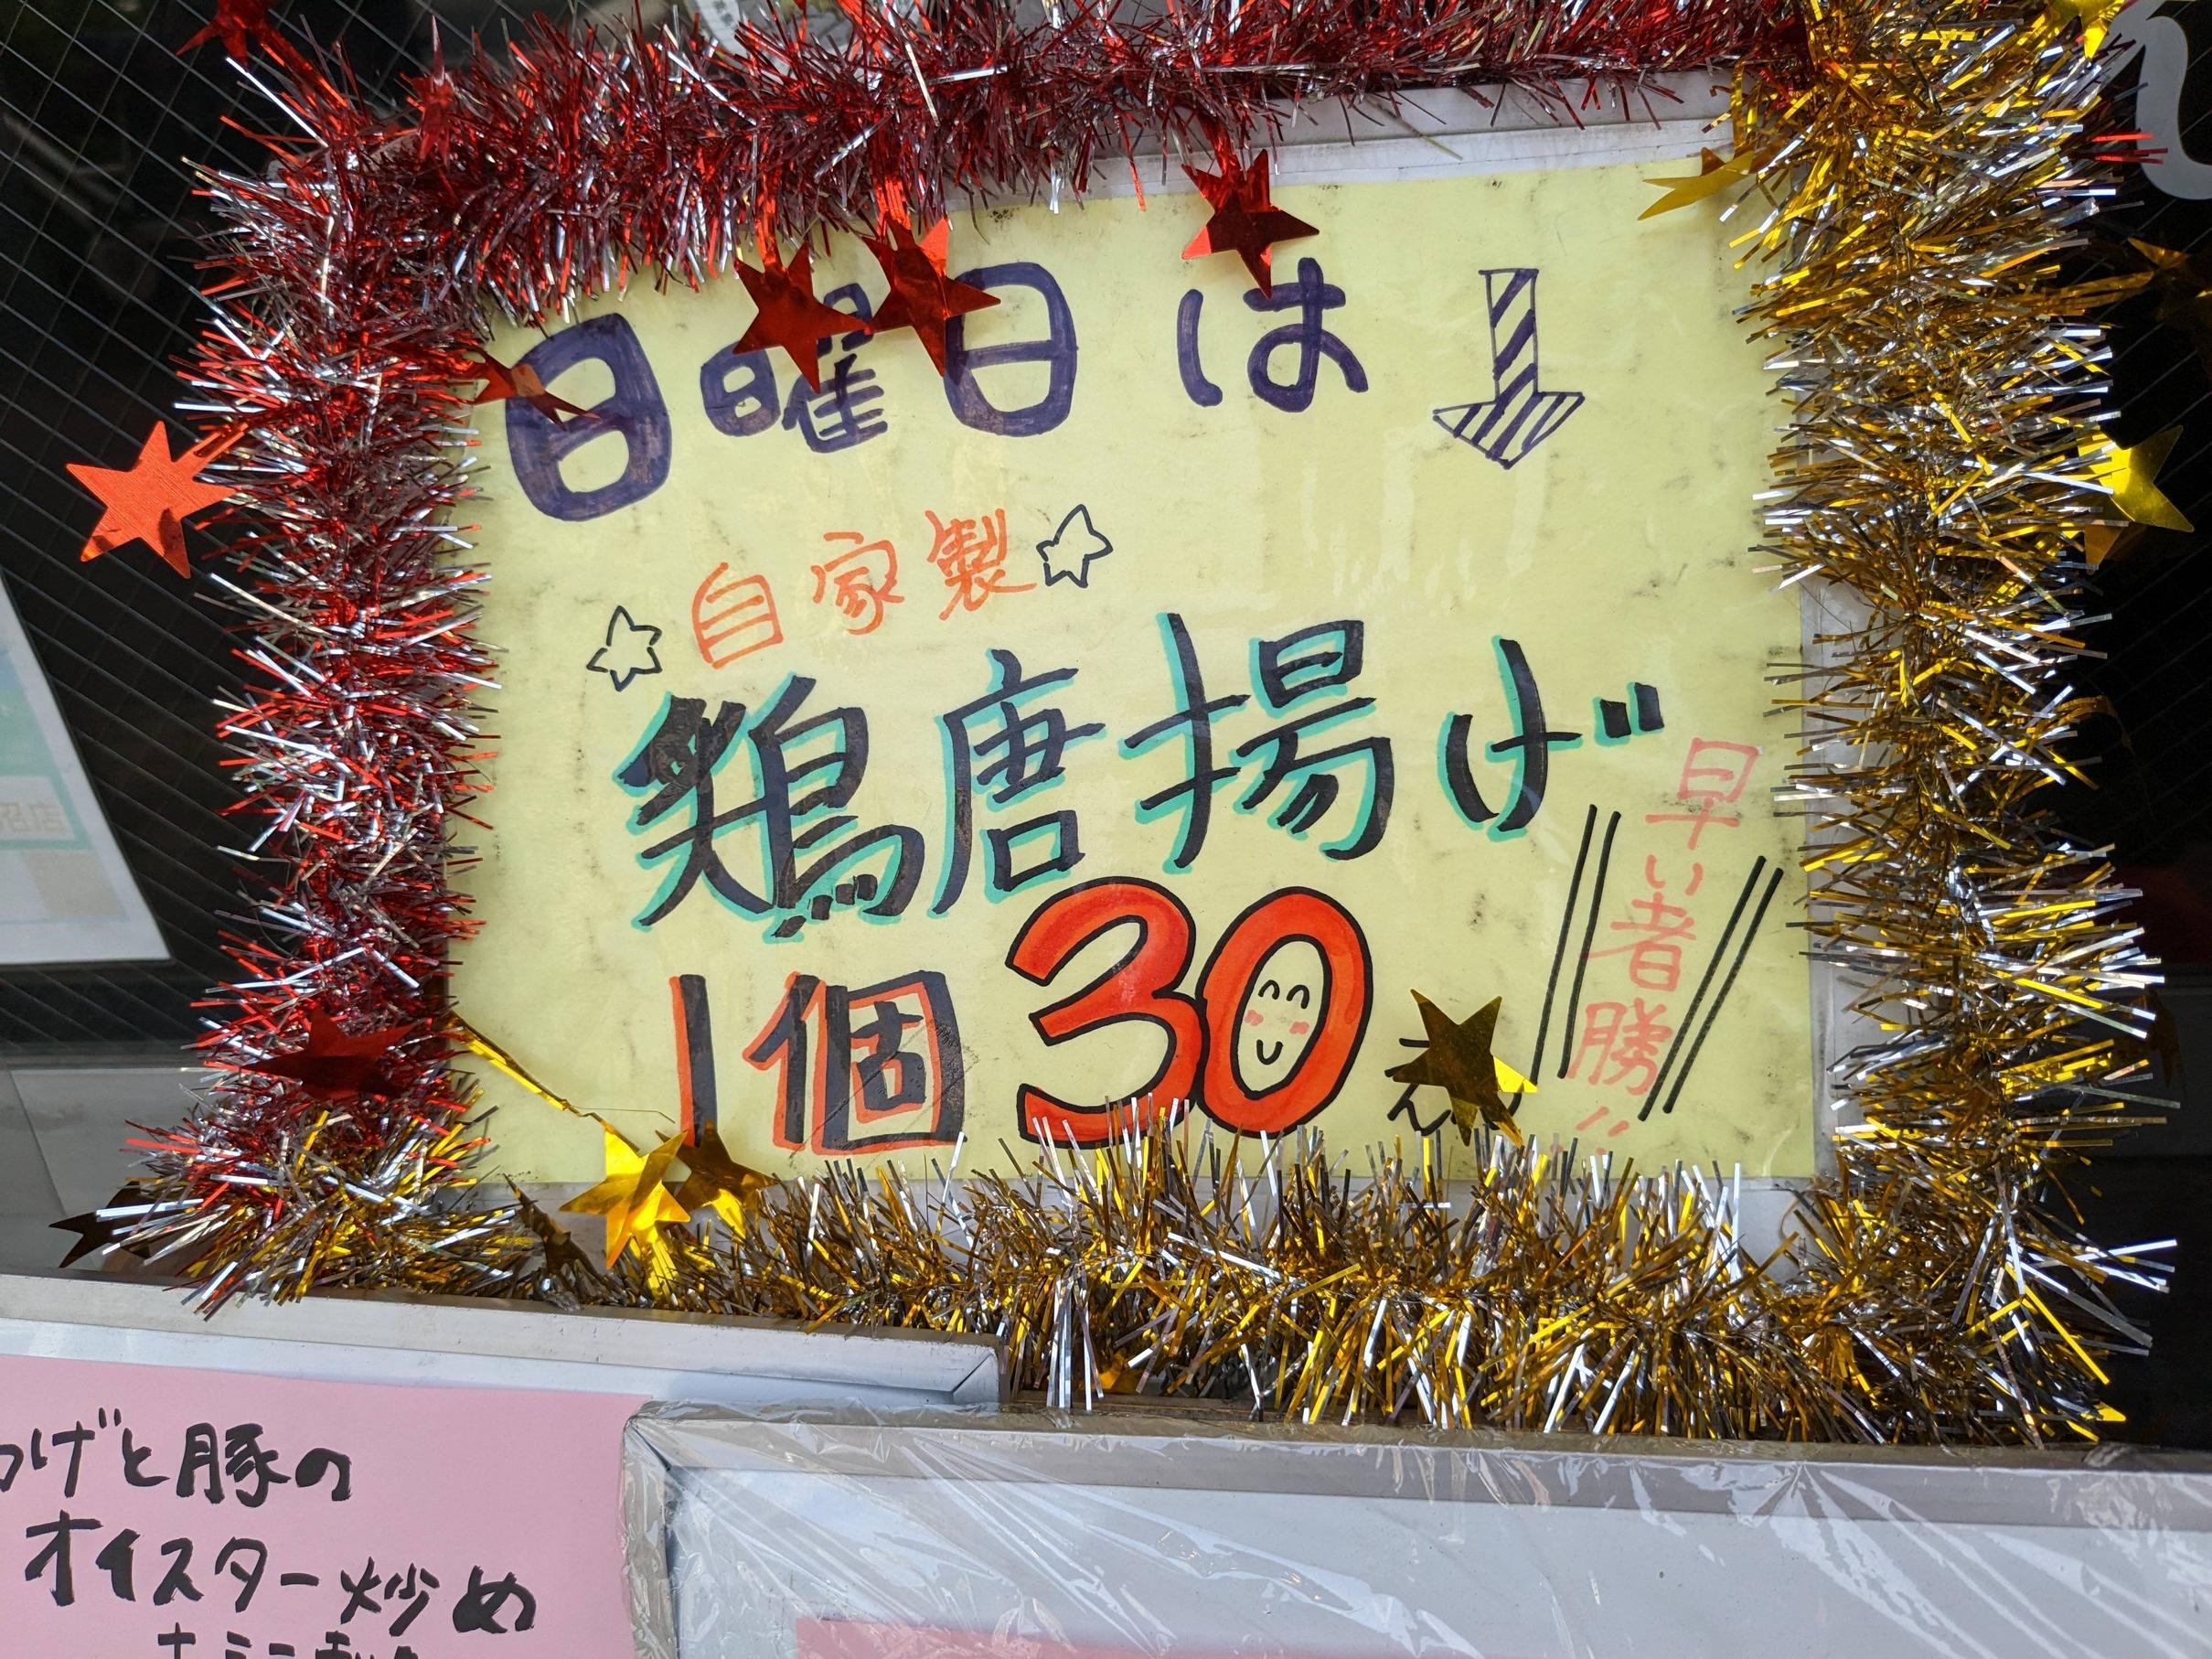 日曜日は
自家製
鶏唐揚げ
1個30えん
早い者勝!!
げと豚の
オイスター炒め